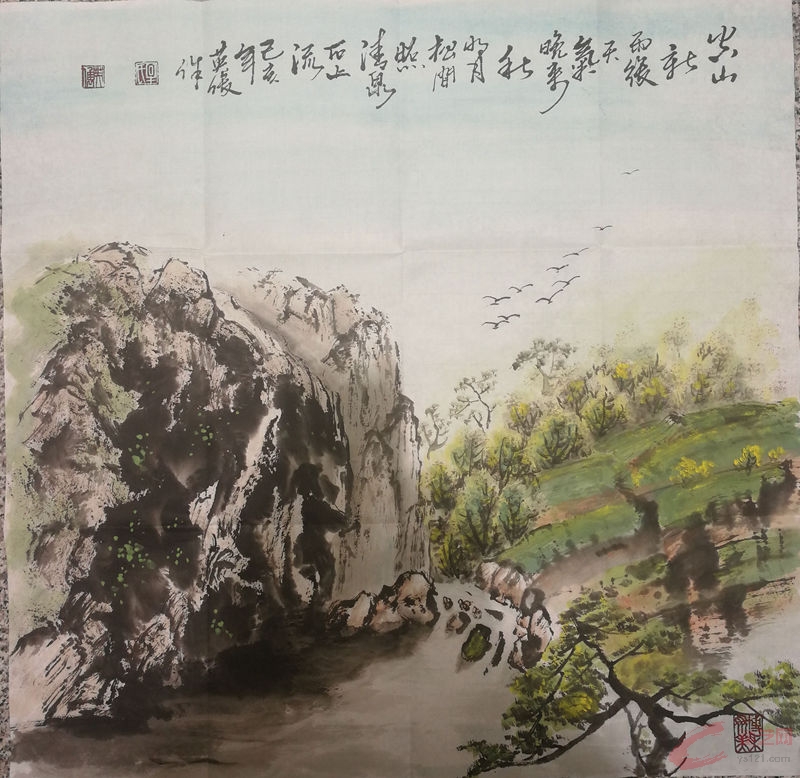 空山
新
雨後
天
氣
晚來
秋
明月
松間
照
清泉
石上
流
己亥
年
作
ys121.com